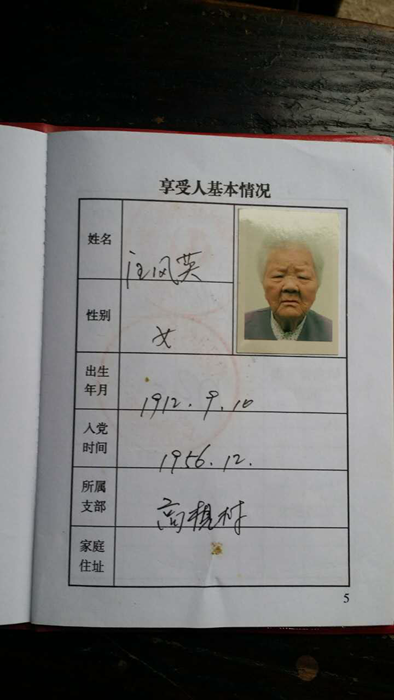 享受人基本情况
姓名
汪风英
性别
女
出生
年月
1912.9.10
入党
时间
1956.12.
所属
支部
高村
家庭
住址
5